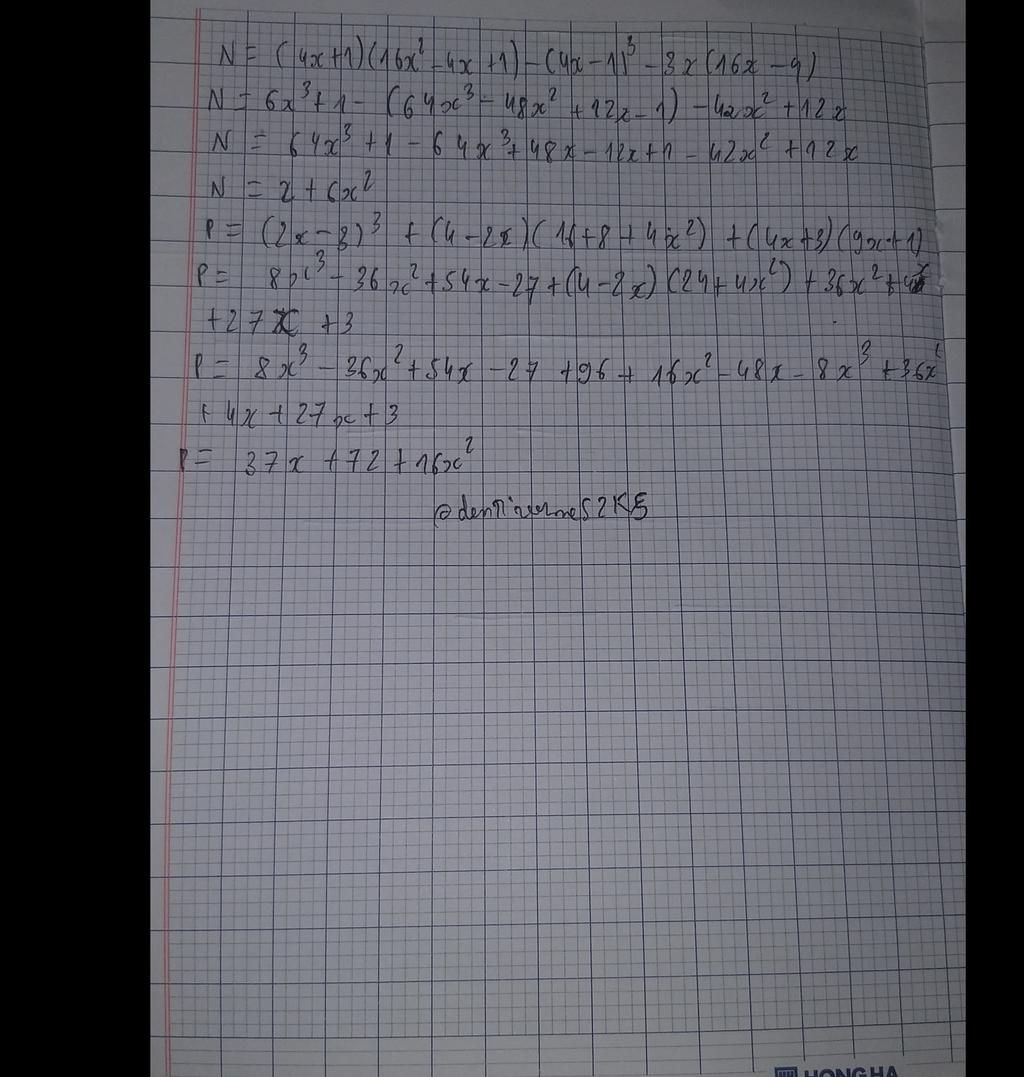 N = (4x+1)(16x² - 4x + 1) - (4x - 1)³ - 3x(16x - 9)
N = 6x³ + 1 - (64x³ - 48x² + 12x - 1) - 42x² + 12x
N = 64x³ + 1 - 64x³ + 48x - 12x + 1 - 42x² + 12x
N = 2 + 6x²
P = (2x - 3)³ + (4 - 2x)(16 + 8 + 4x²) + (4x + 3)(9x + 1)
P = 8x³ - 36x² + 54x - 27 + (4 - 2x)(24 + 4x²) + 36x² + 4x
+ 27x + 3
P = 8x³ - 36x² + 54x - 27 + 96 + 16x² - 48x - 8x³ + 36x²
+ 4x + 27x + 3
P = 37x + 72 + 16x²
HONG HA